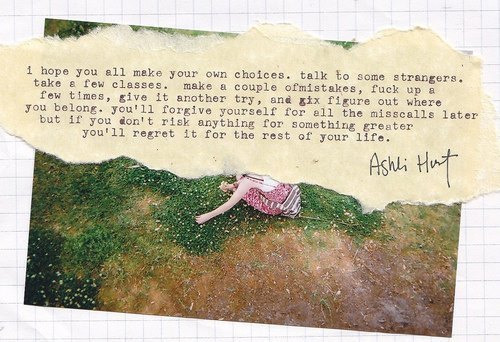 i hope you all make your own choices. talk to some strangers.
take a few classes. make a couple ofmistakes, fuck up a
few times, give it another try, and gix figure out where
you belong. you'll forgive yourself for all the misscalls later
but if you don't risk anything for something greater
you'll regret it for the rest of your life.